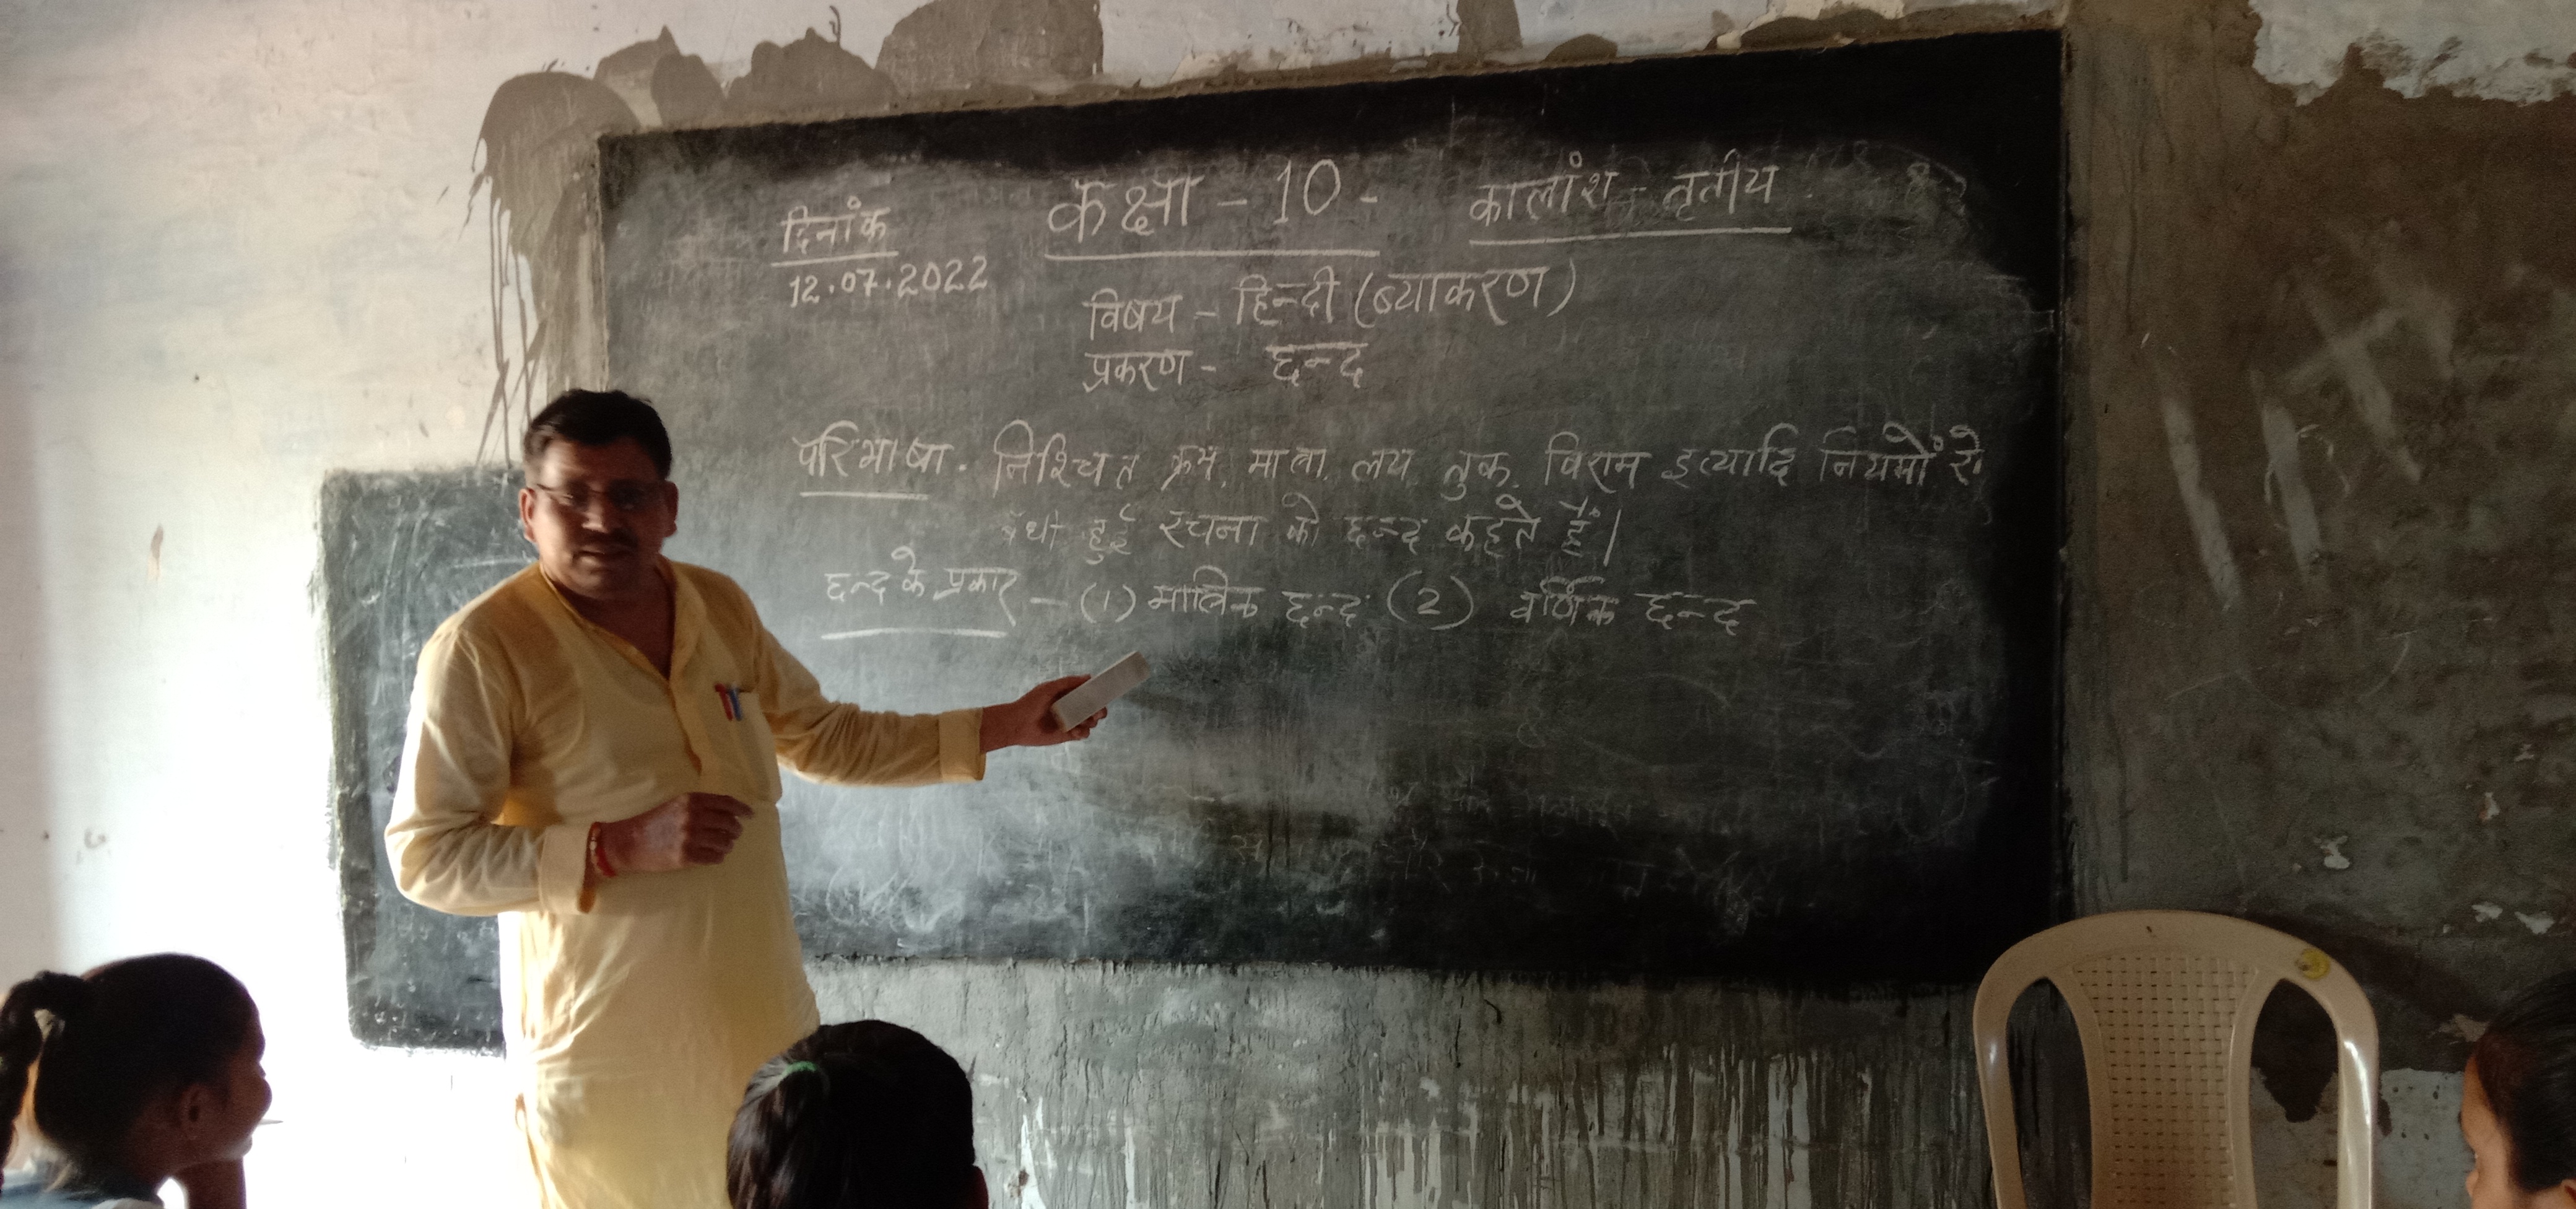 दिनांक
12.07.2022
कक्षा - 10 -
कालांश - तृतीय
विषय - हिन्दी (ब्याकरण)
प्रकरण - छन्द
परिभाषा. निश्चित क्रम, मात्रा, लय, तुक, विराम इत्यादि नियमों से
बँधी हुई रचना को छन्द कहते हैं।
छन्द के प्रकार - (1) मात्रिक छन्द (2) वर्णिक छन्द